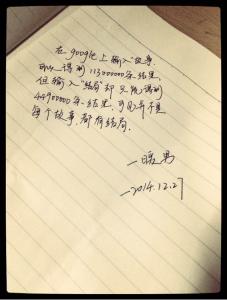 在google上输入"故事"
可以得到113000000条结果,
但输入"结局"却只能得到
44900000条结果,可见并不是
每个故事,都有结局.
—暖男
—2014.12.27